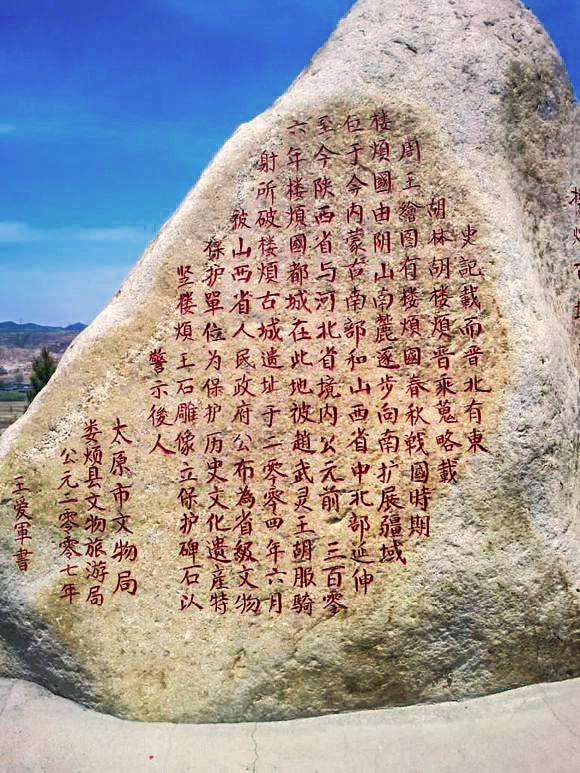 史記載而晋北有東
胡林胡楼煩晋乘蒐略載
周王繪图有楼煩國春秋戦國時期
楼煩國由阴山南麓逐步向南扩展疆域
位于今内蒙古南部和山西省中北部延伸
至今陕西省与河北省境内公元前三百零
六年楼煩國都城在此地被趙武灵王胡服騎
射所破楼煩古城遺址于二零零四年六月
被山西省人民政府公布為省級文物
保护單位为保护历史文化遗産特
竖楼煩王石雕像立保护碑石以
警示後人
太原市文物局
娄烦县文物旅游局
公元二零零七年
王爱軍書